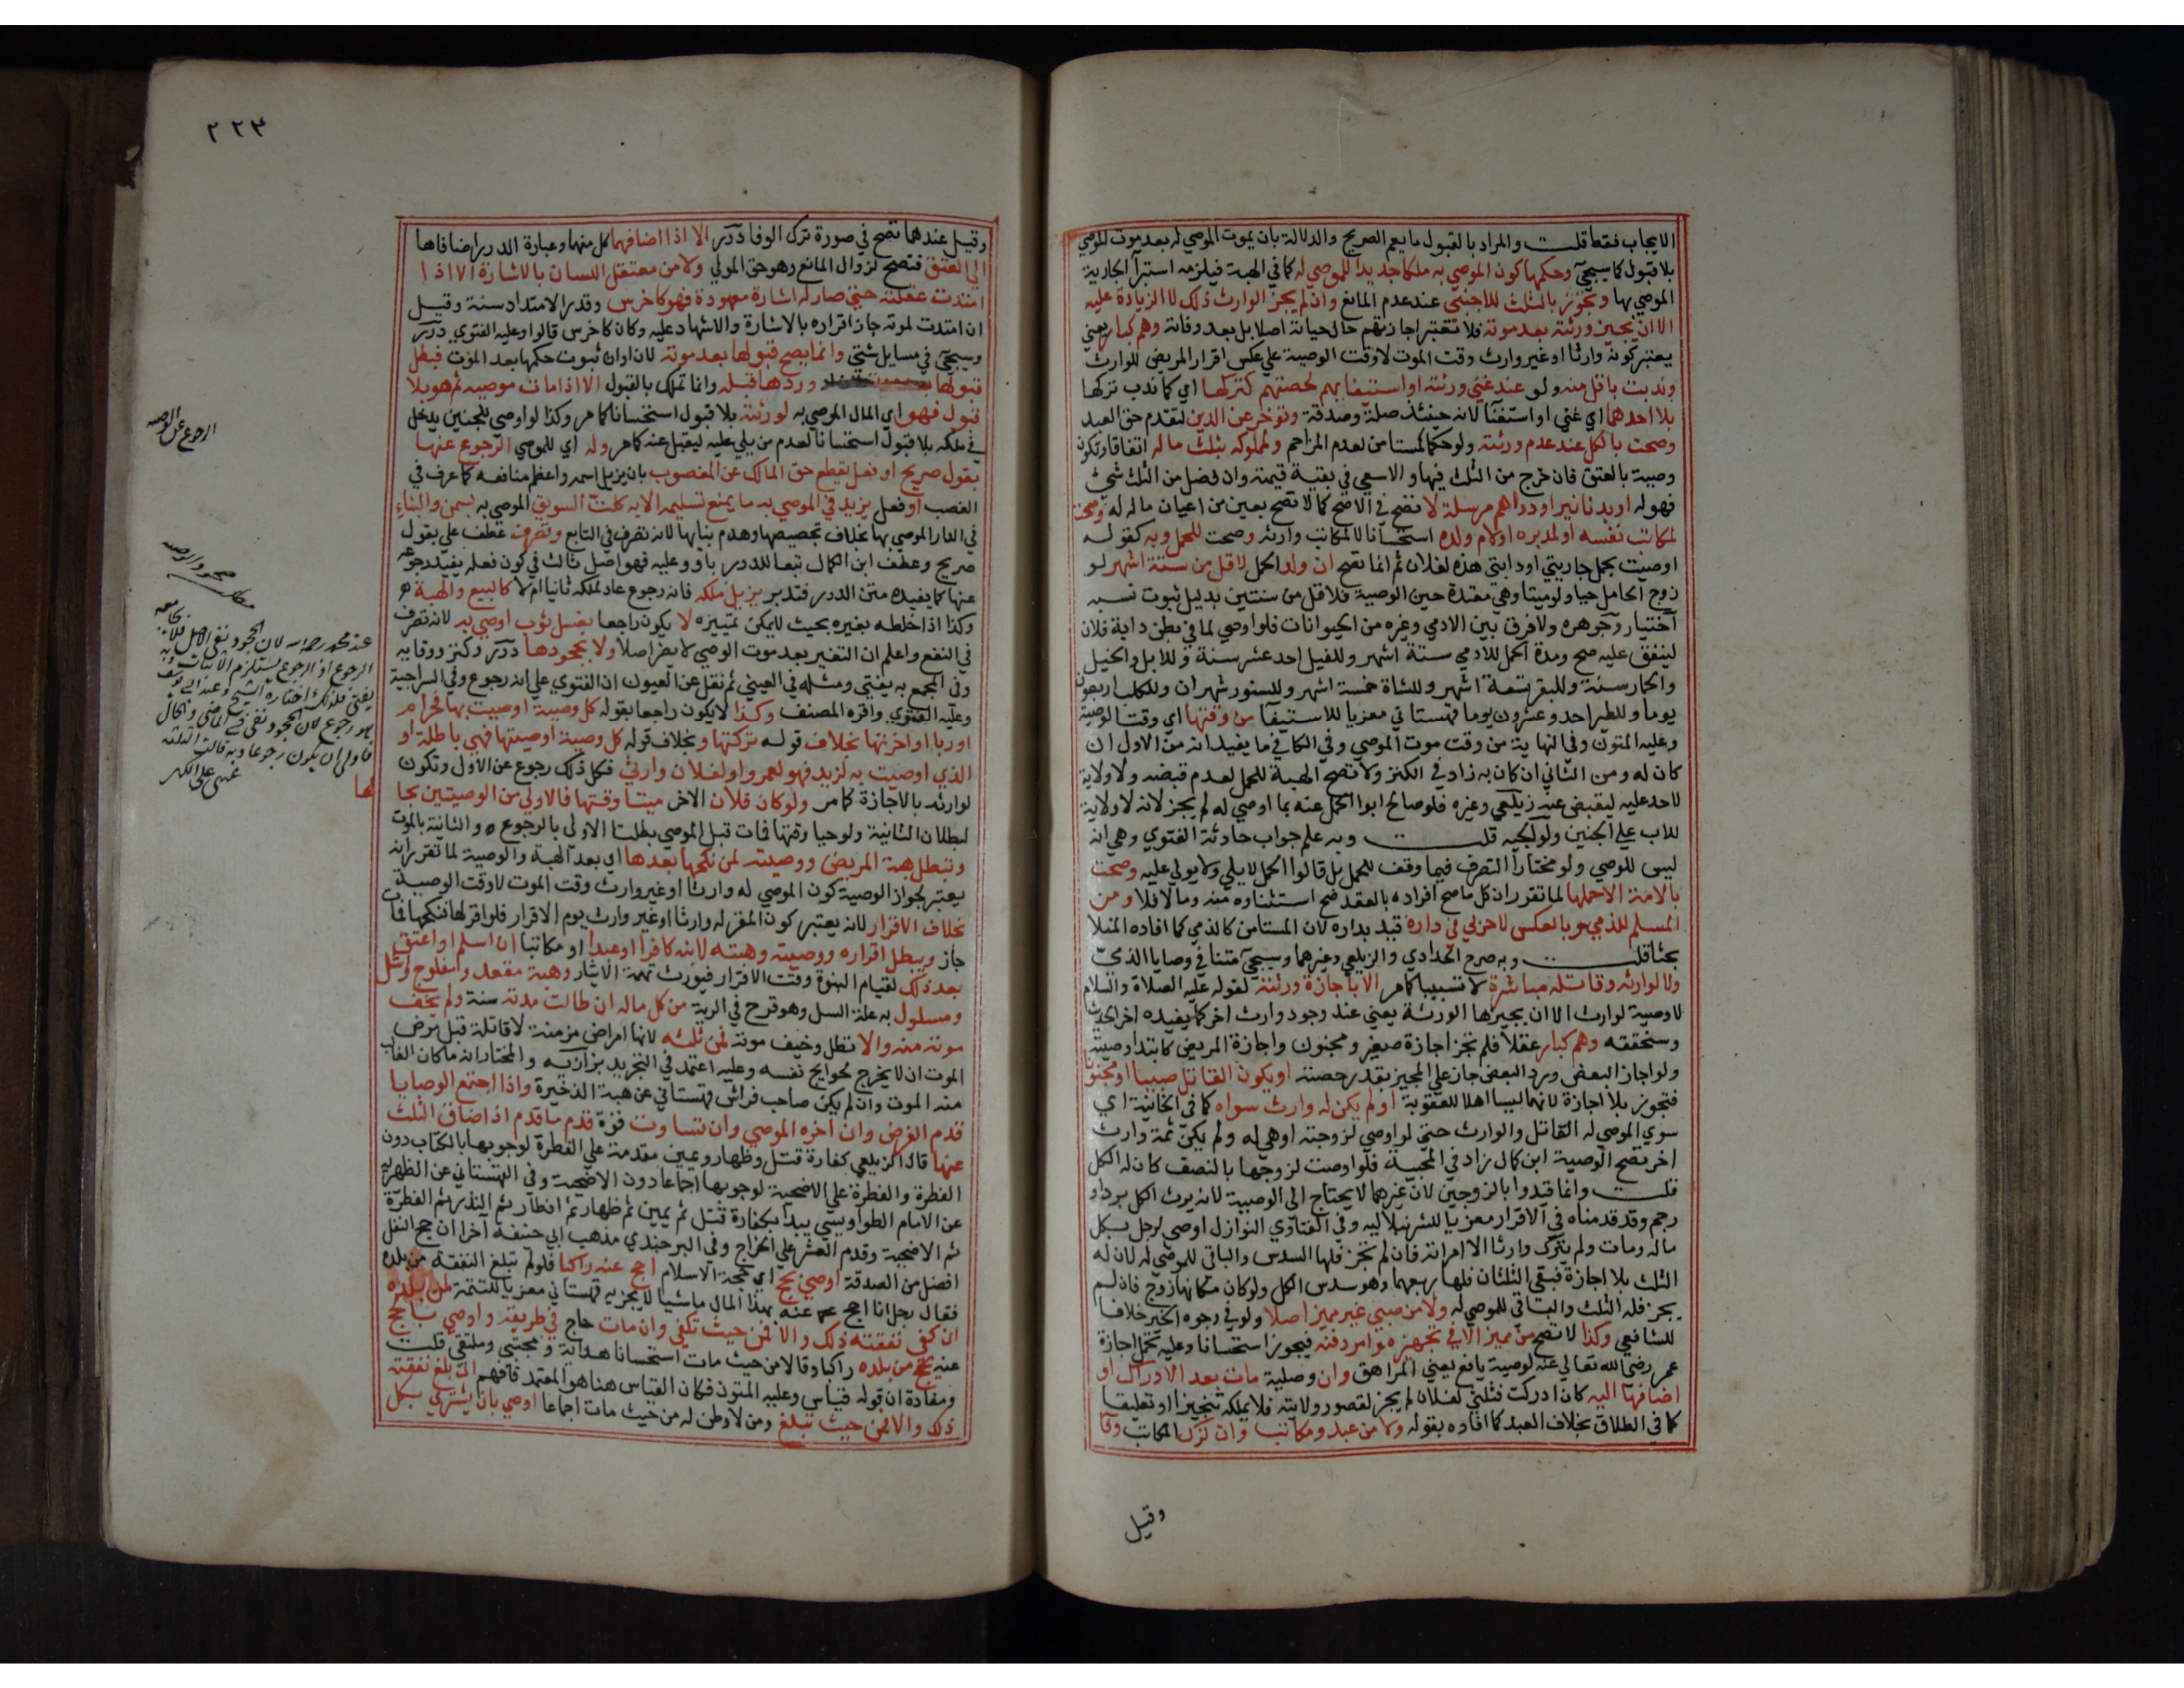 الايجاب فقط قلت والمراد بالقبول ما يعم الصريح والدلالة بان يموت الموصي له بعد موت الموصي
بلا قبول كما سيجئ وحكمها كون الموصي به ملكا جديدا للموصي له كما في الهبة فيلزمه استبرآ الجارية
الموصي بها وتجوز بالثلث للاجنبي عند عدم المانع وان لم يجز الوارث ذلك لا الزيادة عليه
الا ان يجيز ورثته بعد موته فلا تعتبر اجازتهم حال حياته اصلا بل بعد وفاته وهم كبار يعني
يعتبر كونه وارثا او غير وارث وقت الموت لا وقت الوصية علي عكس اقرار المريض للوارث
وندبت باقل منه ولو عند غني ورثته او استيفائهم لحصتهم كتركها اي كما ندب تركها
بلا احدهما اي غني او استغنآ لانه حينئذ صلة وصدقة وتؤخر عن الدين لتقدم حق العبد
وصحت بالكل عند عدم ورثته ولو حكما كمستامن لعدم المزاحم ولمملوكه بثلث ماله اتفاقا وتكون
وصية بالعتق فان خرج من الثلث فبها والا سعي في بقية قيمته وان فضل من الثلث شئ
فهو له او بدنانير او دراهم مرسلة لا تصح في الاصح كما لا تصح بعين من اعيان ماله له وصحت
لمكاتب نفسه او لمدبره او لام ولده استحسانا لا لمكاتب وارثه وصحت للحمل وبه كقوله
اوصيت بحمل جاريتي او دابتي هذه لفلان ثم انما تصح ان ولد الحمل لاقل من ستة اشهر لو
زوج الحامل حيا ولو ميتا وهي معتدة حين الوصية فلاقل من سنتين بدليل ثبوت نسبه
اختيار وجوهره ولا فرق بين الادمي وغيره من الحيوانات فلو اوصي لما في بطن دابة فلان
لينفق عليه صح ومدة الحمل للادمي ستة اشهر وللفيل احد عشر سنة وللابل والخيل
والحمار سنة وللبقر تسعة اشهر وللشاة خمسة اشهر وللسنور شهران وللكلب اربعون
يوما وللطير احد وعشرون يوما قهستاني معزيا للاستيفآ من وقتها اي وقت الوصية
وعليه المتون وفي النهاية من وقت موت الموصي وفي الكافي ما يفيد انه من الاول ان
كان له ومن الثاني ان كان به زاد في الكنز ولا تصح الهبة للحمل لعدم قبضه ولا ولاية
لاحد عليه ليقبض عنه زيلعي وغيره فلو صالح ابو الحمل عنه بما اوصي له لم يجز لانه لا ولاية
للاب علي الجنين ولوالجيه قلت وبه علم جواب حادثة الفتوي وهي انه
ليس للوصي ولو مختارا التصرف فيما وقف للحمل بل قالوا الحمل لا يلي ولا يولي عليه وصحت
بالامة الا حملها لما تقرر ان كل ما صح افراده بالعقد صح استثناوه منه وما لا فلا ومن
المسلم للذمي وبالعكس لا حربي في داره قيد بداره لان المستامن كالذمي كما افاده المنلا
بحثا قلت وبه صرح الحدادي والزيلعي وغيرهما وسيجئ متنا في وصايا الذمي
ولا لوارثه وقاتله مباشرة لا تسبيبا كما مر الا باجازة ورثته لقوله عليه الصلاة والسلام
لا وصية لوارث الا ان يجيزها الورثة يعني عند وجود وارث اخر كما يفيده اخر الحديث
وسنحققه وهم كبار عقلا فلم تجز اجازة صغير ومجنون واجازة المريض كابتدا وصيته
ولو اجاز البعض ورد البعض جاز علي المجيز بقدر حصته او يكون القاتل صبيا او مجنونا
فتجوز بلا اجازة لانهما ليسا اهلا للعقوبة او لم يكن له وارث سواه كما في الخانية اي
سوي الموصي له القاتل والوارث حتي لو اوصي لزوجته او هي له ولم يكن ثمة وارث
اخر تصح الوصية ابن كمال زاد في المحبية فلو اوصت لزوجها بالنصف كان له الكل
قلت وانما قيدوا بالزوجين لان غيرهما لا يحتاج الي الوصية لانه يرث الكل برد او
رحم وقد قدمناه في الاقرار معزيا للشرنبلاليه وفي الفتاوي النوازل اوصي لرجل بكل
ماله ومات ولم يترك وارثا الا امراته فان لم تجز فلها السدس والباقي للموصي له لان له
الثلث بلا اجازة فبقي الثلثان فلها ربعهما وهو سدس الكل ولو كان مكانها زوج فان لم
يجز فله الثلث والباقي للموصي له ولا من صبي غير مميز اصلا ولو في وجوه الخير خلافا
للشافعي وكذا لا تصح من مميز الا في تجهيزه وامر دفنه فيجوز استحسانا وعليه تحمل اجازة
عمر رضي الله تعالي عنه لوصية يافع يعني المراهق وان وصلية مات بعد الادراك او
اضافها اليه كان ادركت فثلثي لفلان لم يجز لقصور ولايته فلا يملكه تنجيزا او تعليقا
كما في الطلاق بخلاف العبد كما افاده بقوله ولا من عبد ومكاتب وان ترك المكاتب وفآ
وقيل
٢٢٣
وقيل عندهما تصح في صورة ترك الوفا درر الا اذا اضافها كل منهما وعبارة الدرر اضافاها
الي العتق فتصح لزوال المانع وهو حق المولي ولا من معتقل اللسان بالاشارة الا اذا
امتدت عقلته حتي صار له اشارة معهودة فهو كاخرس وقدر الامتداد سنة وقيل
ان امتدت لموته جاز اقراره بالاشارة والاشهاد عليه وكان كاخرس قالوا وعليه الفتوي درر
وسيجئ في مسايل شتي وانما يصح قبولها بعد موته لان اوان ثبوت حكمها بعد الموت فبطل
قبولها وردها قبله وانما تملك بالقبول الا اذا مات موصيه ثم هو بلا
قبول فهو اي المال الموصي به لورثته بلا قبول استحسانا كما مر وكذا لو اوصي للجنين يدخل
في ملكه بلا قبول استحسانا لعدم من يلي عليه ليقبل عنه كما مر وله اي للموصي الرجوع عنها
بقول صريح او فعل يقطع حق المالك عن المغصوب بان يزيل اسمه واعظم منافعه كما عرف في
الغصب او فعل يزيد في الموصي به ما يمنع تسليمه الا به كلت السويق الموصي به بسمن والبناء
في الدار الموصي بها بخلاف تجصيصها وهدم بنايها لانه تصرف في التابع وتصرف عطف علي بقول
صريح وعطف ابن الكمال تبعا للدرر باو وعليه فهو اصل ثالث في كون فعله يفيد رجوعه
عنها كما يفيده متن الدرر فتدبر يزيل ملكه فانه رجوع عاد لملكه ثانيا ام لا كالبيع والهبة
وكذا اذا خلطه بغيره بحيث لا يمكن تمييزه لا يكون راجعا بغسل ثوب اوصي به لانه تصرف
في النفع واعلم ان التغير بعد موت الموصي لا يضر اصلا ولا بجحودها درر وكنز ووقايه
وفي المجمع به يفتي ومثله في العيني ثم نقل عن العيون ان الفتوي علي انه رجوع وفي السراجية
وعليه الفتوي واقره المصنف وكذا لا يكون راجعا بقوله كل وصية اوصيت بها فحرام
او ربا او اخرتها بخلاف قوله تركتها وبخلاف قوله كل وصية اوصيتها فهي باطلة او
الذي اوصيت به لزيد فهو لعمرو او لفلان وارثي فكل ذلك رجوع عن الاول وتكون
لوارثه بالاجازة كما مر ولو كان فلان الاخر ميتا وقتها فالاولي من الوصيتين بحالها
لبطلان الثانية ولو حيا وقتها فمات قبل الموصي بطلتا الاولي بالرجوع والثانية بالموت
وتبطل هبة المريض ووصيته لمن نكحها بعدها اي بعد الهبة والوصية لما تقرر انه
يعتبر لجواز الوصية كون الموصي له وارثا او غير وارث وقت الموت لا وقت الوصية
بخلاف الاقرار لانه يعتبر كون المقر له وارثا او غير وارث يوم الاقرار فلو اقر لها فنكحها فمات
جاز ويبطل اقراره ووصيته وهبته لابنه كافرا او عبدا او مكاتبا ان اسلم او اعتق
بعد ذلك لقيام البنوة وقت الاقرار فيورث تهمة الايثار وهبة مقعد ومفلوج واشل
ومسلول به علة السل وهو قرح في الرية من كل ماله ان طالت مدته سنة ولم يخف
موته منه والا تطل وخيف موته فمن ثلثه لانها امراض مزمنة لا قاتلة قبل مرض
الموت ان لا يخرج لحوايج نفسه وعليه اعتمد في التجريد بزازيه والمختار انه ما كان الغالب
منه الموت وان لم يكن صاحب فراش قهستاني عن هبة الذخيرة واذا اجتمع الوصايا
قدم الفرض وان اخره الموصي وان تساوت قوة قدم ما قدم اذا ضاق الثلث
عنها قال الزيلعي كفارة قتل وظهار ويمين مقدمة علي الفطرة لوجوبها بالكتاب دون
الفطرة والفطرة علي الاضحية لوجوبها اجماعا دون الاضحية وفي القهستاني عن الظهيريه
عن الامام الطواويسي يبدا بكفارة قتل ثم يمين ثم ظهار ثم افطار ثم النذر ثم الفطرة
ثم الاضحية وقدم العشر علي الخراج وفي البرجندي مذهب ابي حنيفة آخرا ان حج النفل
افضل من الصدقة اوصي بحج اي حجة الاسلام احج عنه راكبا فلو لم تبلغ النفقة من بلده
فقال رجل انا احج عنه بهذا المال ماشيا لا يجزيه قهستاني معزيا للتتمة من بلده
ان كفي نفقته ذلك والا فمن حيث تكفي وان مات حاج في طريقه واوصي بالحج
عنه يحج من بلده راكبا وقالا من حيث مات استحسانا هداية ومجتبي وملتقي قلت
ومفاده ان قوله قياس وعليه المتون فكان القياس هنا هو المعتمد فافهم ان بلغ نفقته
ذلك والا فمن حيث تبلغ ومن لا وطن له من حيث مات اجماعا اوصي بان يشتري بكل
الرجوع عن الوصيه
عند محمد رحمه الله لان الجحود نفي الاصل